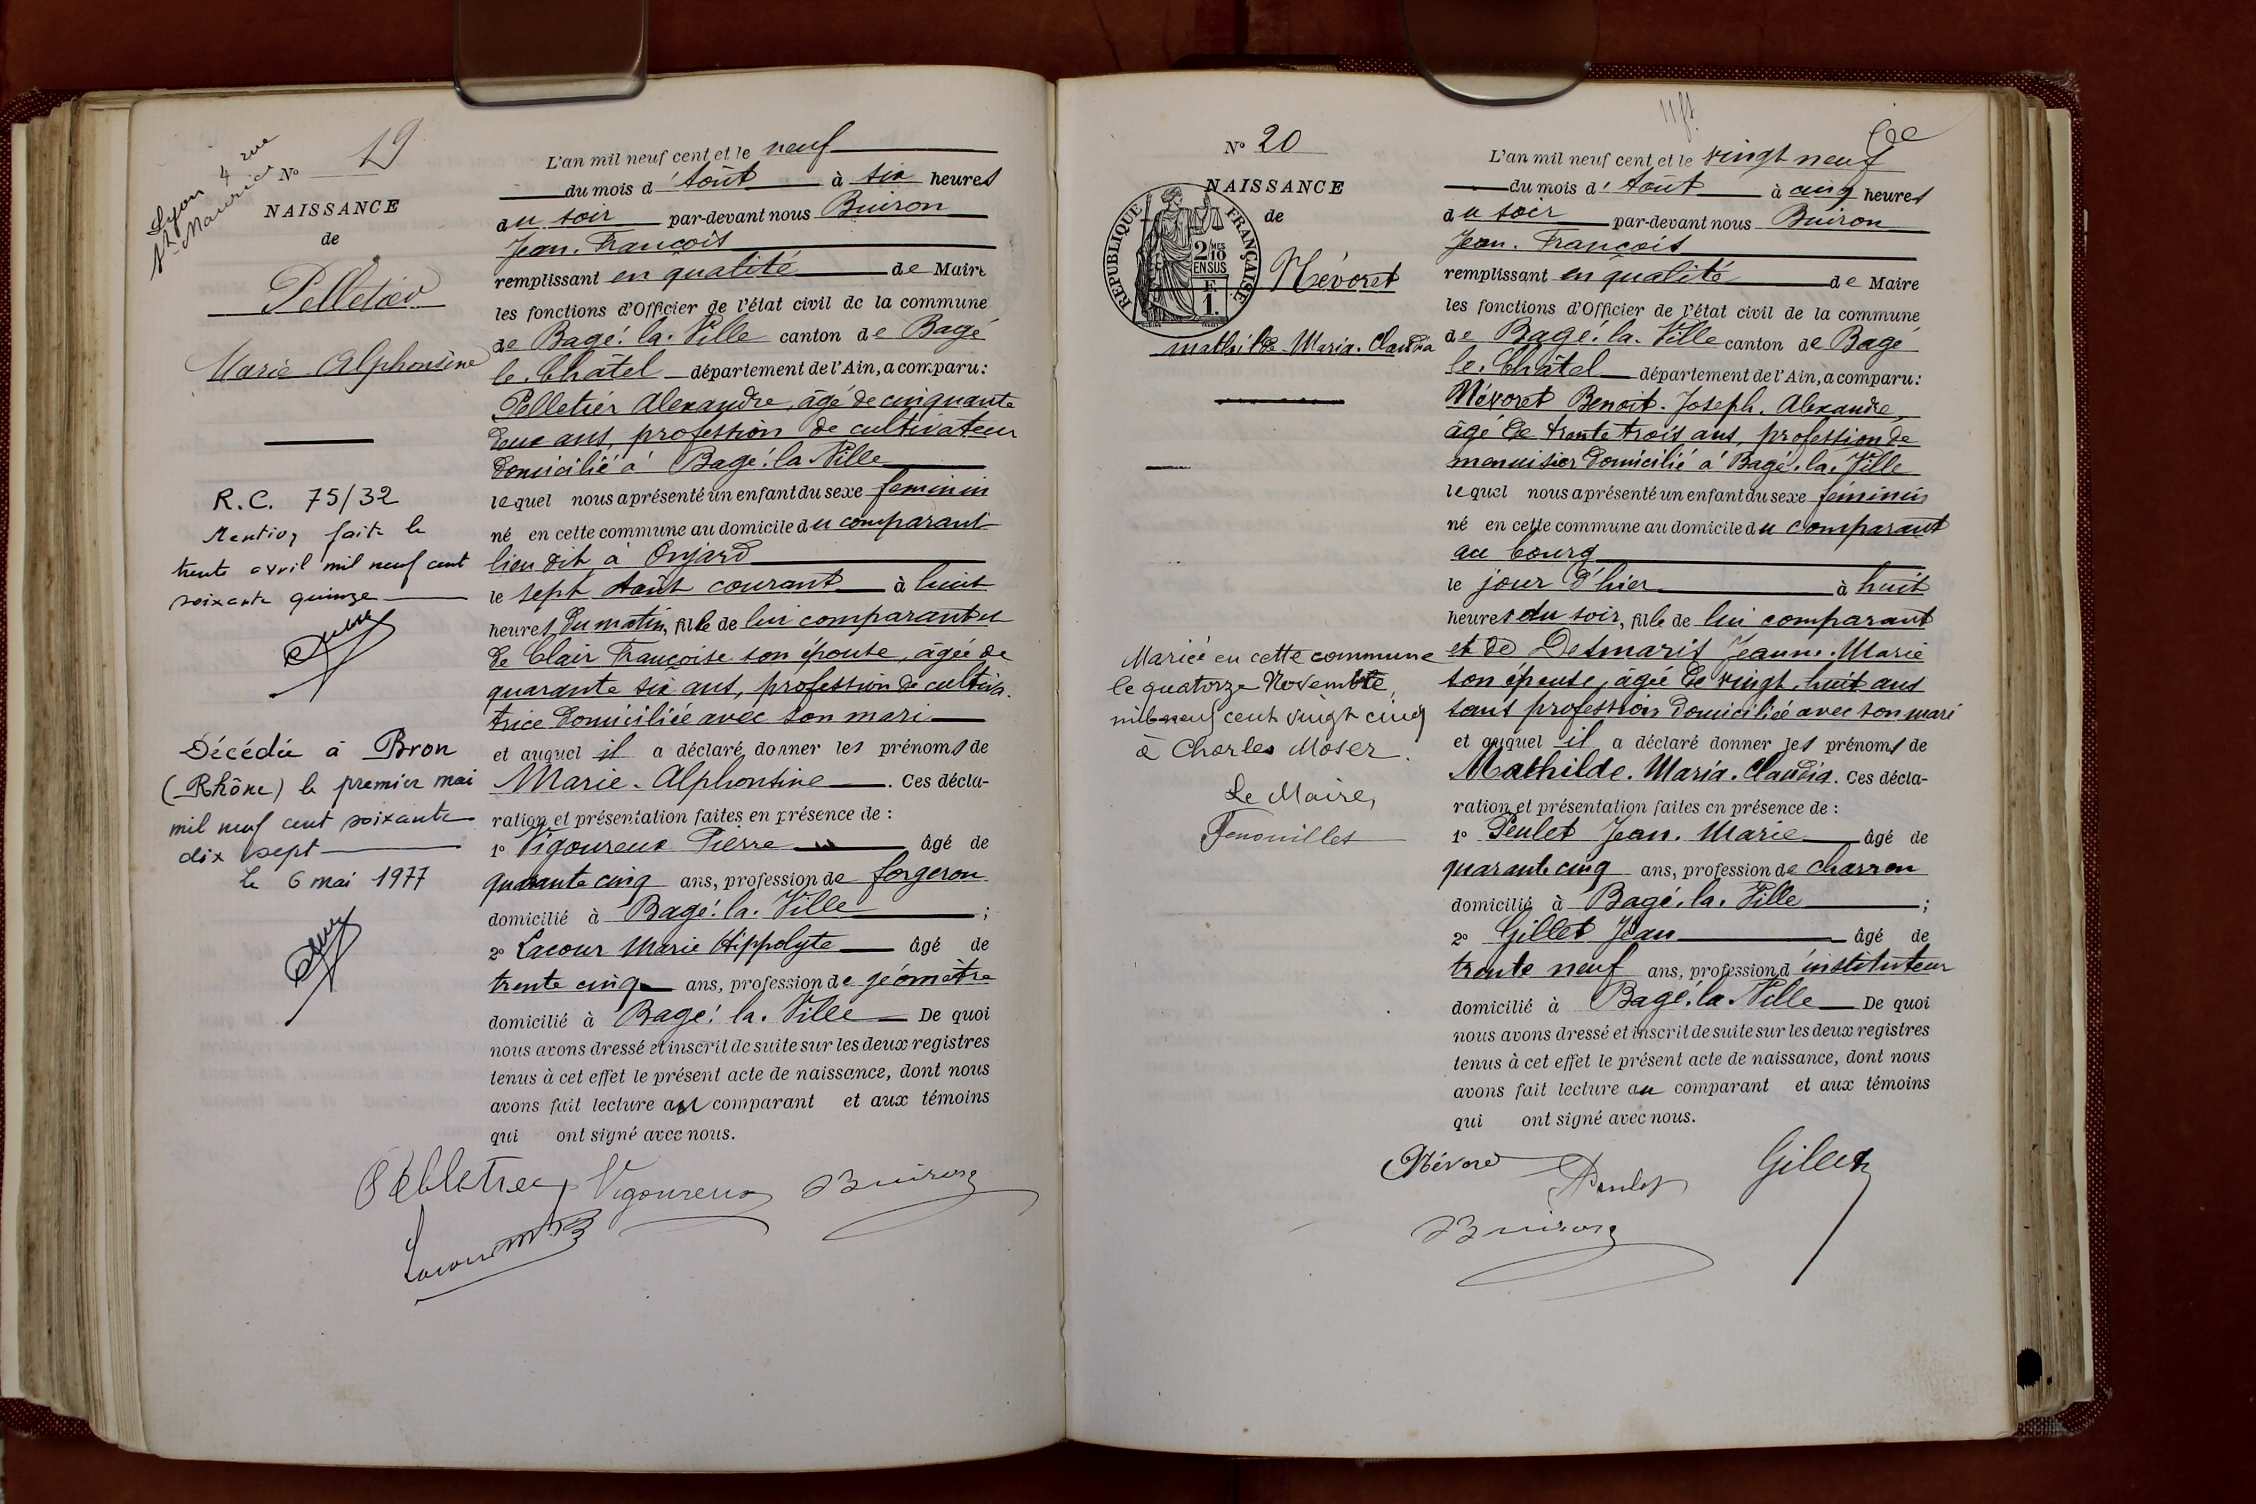 Lyon 4 rue
St Maurice
No 19
NAISSANCE
de
Pelletier
Marie Alphonsine
R.C. 75/32
Mention faite le
trente avril mil neuf cent
soixante quinze
Décédée à Bron
(Rhône) le premier mai
mil neuf cent soixante
dix sept
Le 6 mai 1977
L'an mil neuf cent et le neuf
du mois d'Août à six heures
du soir par-devant nous Buiron
Jean. François
remplissant en qualité de Maire
les fonctions d'Officier de l'état civil de la commune
de Bagé. la. Ville canton de Bagé
le. Châtel département de l'Ain, a comparu:
Pelletier Alexandre, âgé de cinquante
deux ans, profession de cultivateur
domicilié à Bagé. la Ville
lequel nous a présenté un enfant du sexe féminin
né en cette commune au domicile du comparant
lieu dit à Onjard
le sept Août courant à huit
heures du matin, fille de lui comparant et
de Clair Françoise son épouse, âgée de
quarante six ans, profession de cultiva.
trice domiciliée avec son mari
et auquel il a déclaré donner les prénoms de
Marie. Alphonsine. Ces décla-
ration et présentation faites en présence de :
1o Vigoureux Pierre âgé de
quarante cinq ans, profession de forgeron
domicilié à Bagé. la. Ville ;
2o Lacour Marie Hippolyte âgé de
trente cinq ans, profession de géomètre
domicilié à Bagé. la. Ville De quoi
nous avons dressé et inscrit de suite sur les deux registres
tenus à cet effet le présent acte de naissance, dont nous
avons fait lecture au comparant et aux témoins
qui ont signé avec nous.
Pelletier Vigoureux Buiron
Lacour M. H
No 20
NAISSANCE
de
REPUBLIQUE FRANÇAISE
2 MES
10
EN SUS
F.
1.
Névoret
Mathilde. Maria. Claudia
Mariée en cette commune
le quatorze Novembre
mil neuf cent vingt cinq
à Charles Moser.
Le Maire,
Fenouillet
L'an mil neuf cent et le vingt neuf
du mois d'Août à cinq heures
du soir par-devant nous Buiron
Jean. François
remplissant en qualité de Maire
les fonctions d'Officier de l'état civil de la commune
de Bagé. la. Ville canton de Bagé
le. Châtel département de l'Ain, a comparu:
Névoret Benoit. Joseph. Alexandre,
âgé de trente trois ans, profession de
menuisier domicilié à Bagé. la. Ville
lequel nous a présenté un enfant du sexe féminin
né en cette commune au domicile du comparant
au bourg
le jour d'hier à huit
heures du soir, fille de lui comparant
et de Desmaris Jeanne. Marie
son épouse, âgée de vingt. huit ans
sans profession domiciliée avec son mari
et auquel il a déclaré donner les prénoms de
Mathilde. Maria. Claudia. Ces décla-
ration et présentation faites en présence de :
1o Peulet Jean. Marie âgé de
quarante cinq ans, profession de charron
domicilié à Bagé. la. Ville ;
2o Gillet Jean âgé de
trente neuf ans, profession d'instituteur
domicilié à Bagé. la. Ville De quoi
nous avons dressé et inscrit de suite sur les deux registres
tenus à cet effet le présent acte de naissance, dont nous
avons fait lecture au comparant et aux témoins
qui ont signé avec nous.
Névoret Peulet Gillet
Buiron